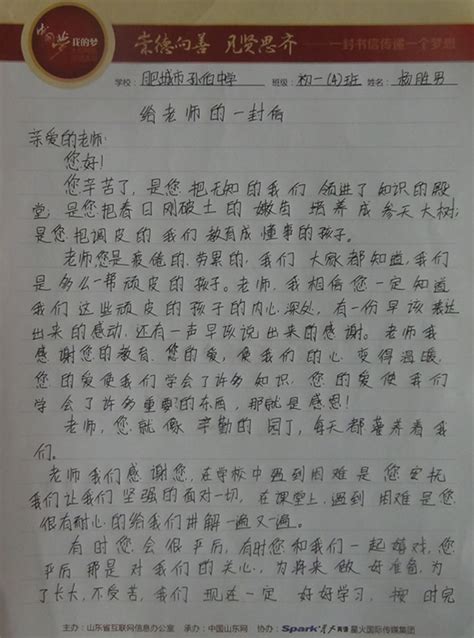 中国梦 我的梦 崇德向善 见贤思齐 ——一封书信传递一个梦想
学校: 肥城市孔伯中学 班级: 初一(4)班 姓名: 杨胜男
给老师的一封信
亲爱的老师:
您好!
您辛苦了,是您把无知的我们领进了知识的殿
堂;是您把春日刚破土的嫩苗培养成参天大树;
是您把调皮的我们教育成懂事的孩子。
老师您是疲倦的.劳累的.我们大家都知道,我们
是多么一帮顽皮的孩子。老师,我相信您一定知道
我们这些顽皮的孩子的内心深处,有一份早该表达
出来的感动,还有一声早该说出来的感谢。老师我
感谢您的教育、您的爱,使我们的心变得温暖,
您的爱使我们学会了许多知识,您的爱使我们
学会了许多重要的东西,那就是感恩!
老师,您就像辛勤的园丁,每天都蓄养着我
们。
老师我们感谢您,在学校中遇到困难是您安抚
我们让我们坚强的面对一切,在课堂上,遇到困难是您
很有耐心的给我们讲解一遍又一遍。
有时您会很严厉,有时您和我们一起嬉戏,您
严厉那是对我们的关心,为将来做好准备,为
了长大,不受苦,我们现在一定好好学习,按时完
主办:山东省互联网信息办公室 承办:中国山东网 协办:Spark 星火英语 星火国际传媒集团